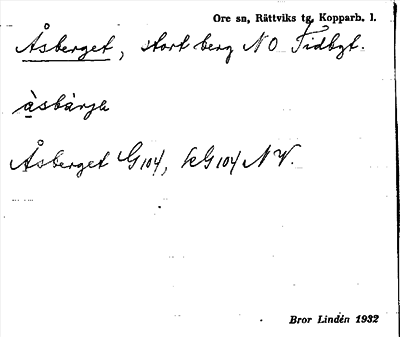 Ore sn, Rättviks tg, Kopparb. l.
Åsberget, stort berg NO Tidbgt.
àsbàrjɛ
Åsberget G104, kG104 NV.
Bror Lindén 1932